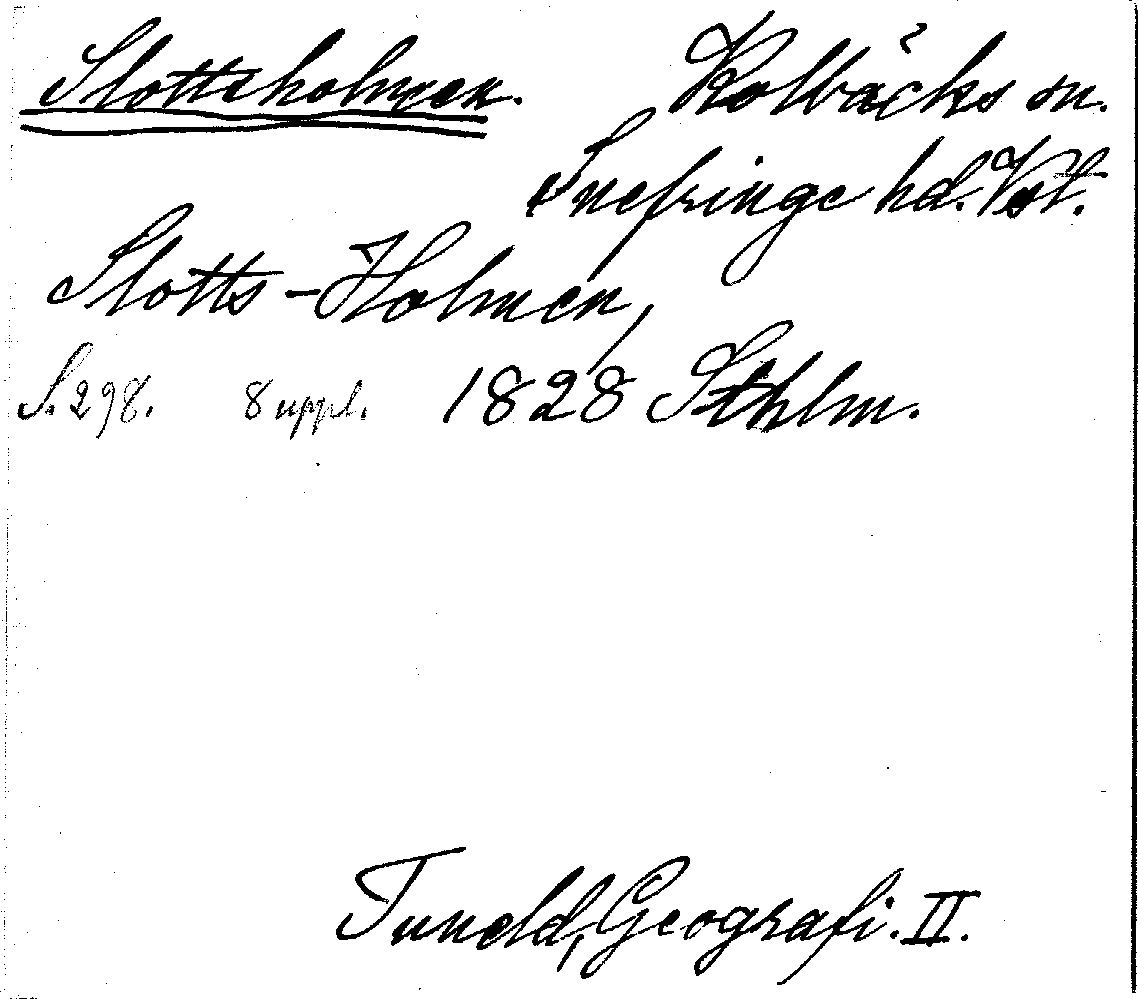 Slottsholmen. Kolbäcks sn.
Snefringe hd. Vstl.
Slotts-Holmen,
S. 298. 8 uppl. 1828 Sthlm.
Tuneld, Geografi. II.